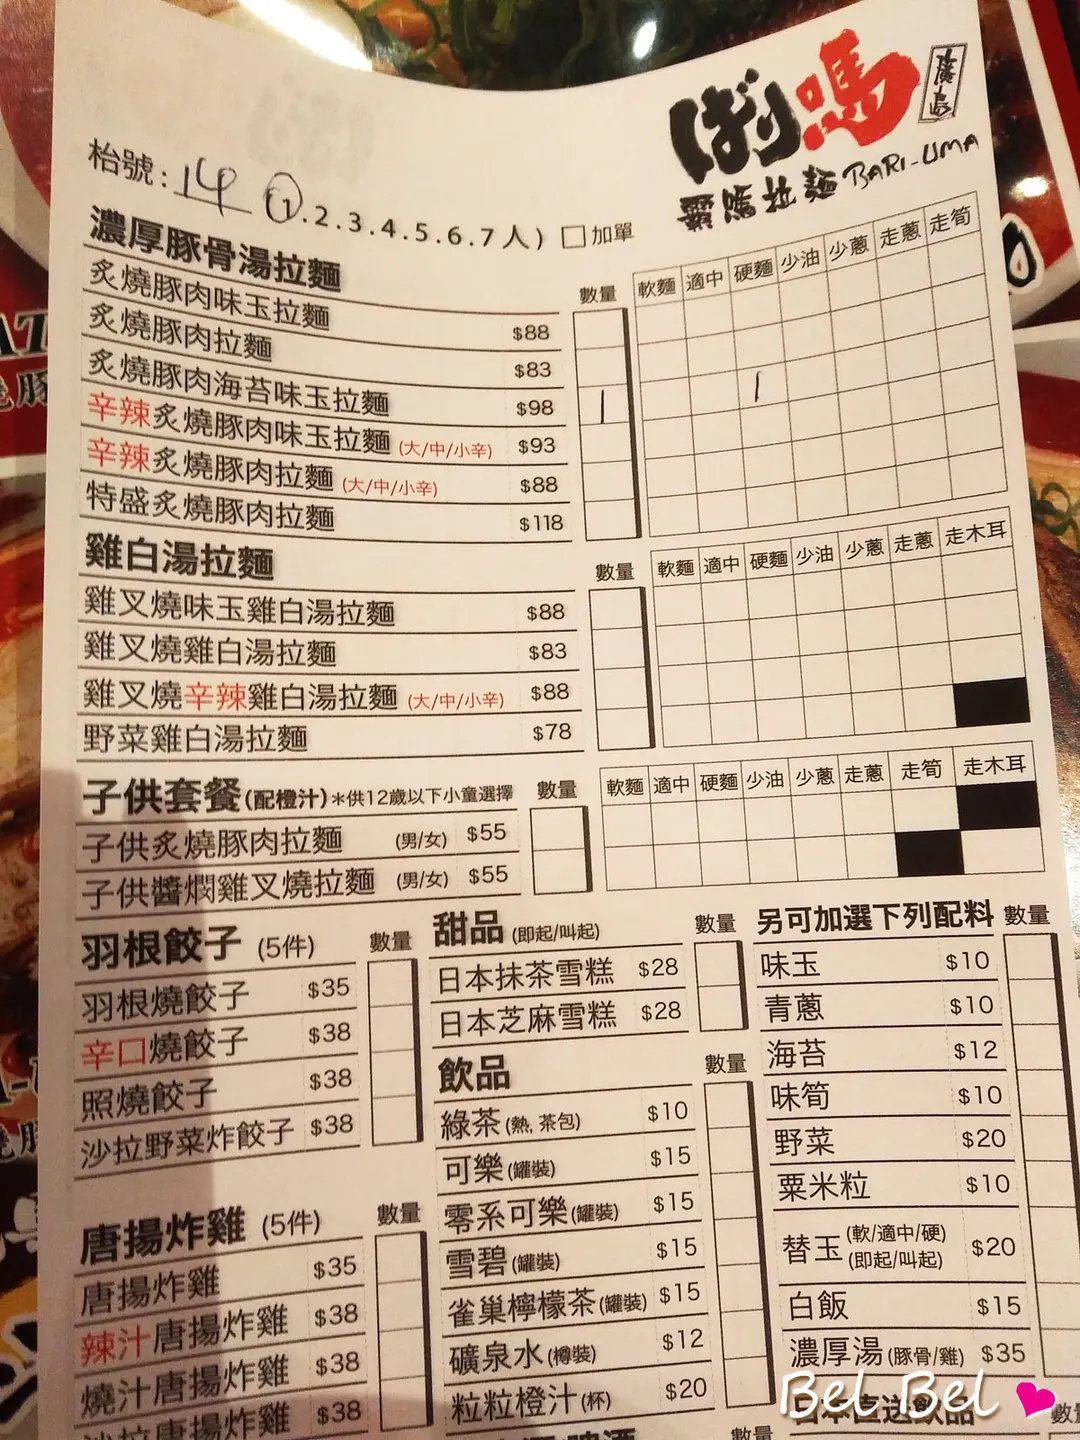 ばり嗎
霸嗎拉麵 BARI-UMA
枱號: 14 (1.2.3.4.5.6.7人) □加單
濃厚豚骨湯拉麵 數量 軟麵 適中 硬麵 少油 少蔥 走蔥 走筍
炙燒豚肉味玉拉麵 $88
炙燒豚肉拉麵 $83
炙燒豚肉海苔味玉拉麵 $98 1 1
辛辣炙燒豚肉味玉拉麵 (大/中/小辛) $93
辛辣炙燒豚肉拉麵 (大/中/小辛) $88
特盛炙燒豚肉拉麵 $118
雞白湯拉麵 數量 軟麵 適中 硬麵 少油 少蔥 走蔥 走木耳
雞叉燒味玉雞白湯拉麵 $88
雞叉燒雞白湯拉麵 $83
雞叉燒辛辣雞白湯拉麵 (大/中/小辛) $88
野菜雞白湯拉麵 $78
子供套餐(配橙汁)*供12歲以下小童選擇 數量 軟麵 適中 硬麵 少油 少蔥 走蔥 走筍 走木耳
子供炙燒豚肉拉麵 (男/女) $55
子供醬燜雞叉燒拉麵 (男/女) $55
羽根餃子 (5件) 數量
羽根燒餃子 $35
辛口燒餃子 $38
照燒餃子 $38
沙拉野菜炸餃子 $38
唐揚炸雞 (5件) 數量
唐揚炸雞 $35
辣汁唐揚炸雞 $38
燒汁唐揚炸雞 $38
沙拉唐揚炸雞 $38
甜品 (即起/叫起) 數量
日本抹茶雪糕 $28
日本芝麻雪糕 $28
飲品 數量
綠茶(熱, 茶包) $10
可樂(罐裝) $15
零系可樂(罐裝) $15
雪碧(罐裝) $15
雀巢檸檬茶(罐裝) $15
礦泉水(樽裝) $12
粒粒橙汁(杯) $20
數量
另可加選下列配料 數量
味玉 $10
青蔥 $10
海苔 $12
味筍 $10
野菜 $20
粟米粒 $10
替玉 (軟/適中/硬) (即起/叫起) $20
白飯 $15
濃厚湯(豚骨/雞) $35
日本直送飲品 數量
Bel Bel